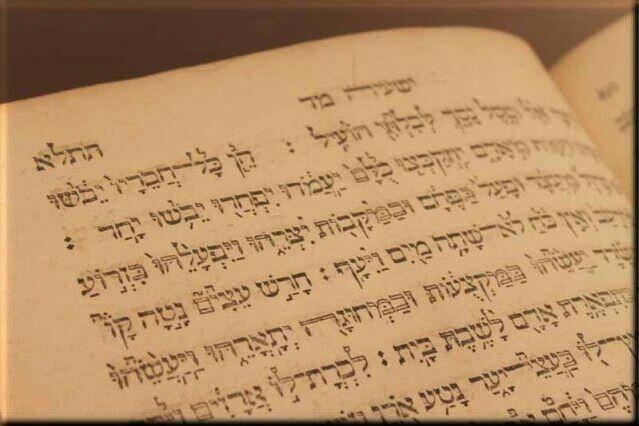 ישעיה מד
תתלא
אֵל וּפֶסֶל נָסָךְ לְבִלְתִּי הוֹעִיל : הֵן כָּל־חֲבֵרָיו יֵבֹשׁוּ
מֵאָדָם יִתְקַבְּצוּ כֻלָּם יַעֲמֹדוּ יִפְחֲדוּ יֵבֹשׁוּ יָחַד :
מַעֲצָד וּפָעַל בַּפֶּחָם וּבַמַּקָּבוֹת יִצְּרֵהוּ וַיִּפְעָלֵהוּ בִּזְרוֹעַ
וְאֵין כֹּחַ לֹא־שָׁתָה מַיִם וַיִּיעָף : חָרַשׁ עֵצִים נָטָה קָו
יַעֲשֵׂהוּ בַּמַּקְצֻעוֹת וּבַמְּחוּגָה יְתָאֳרֵהוּ וַיַּעֲשֵׂהוּ
כְּתִפְאֶרֶת אָדָם לָשֶׁבֶת בָּיִת : לִכְרָת־לוֹ אֲרָזִים
בַּעֲצֵי־יָעַר נָטַע אֹרֶן